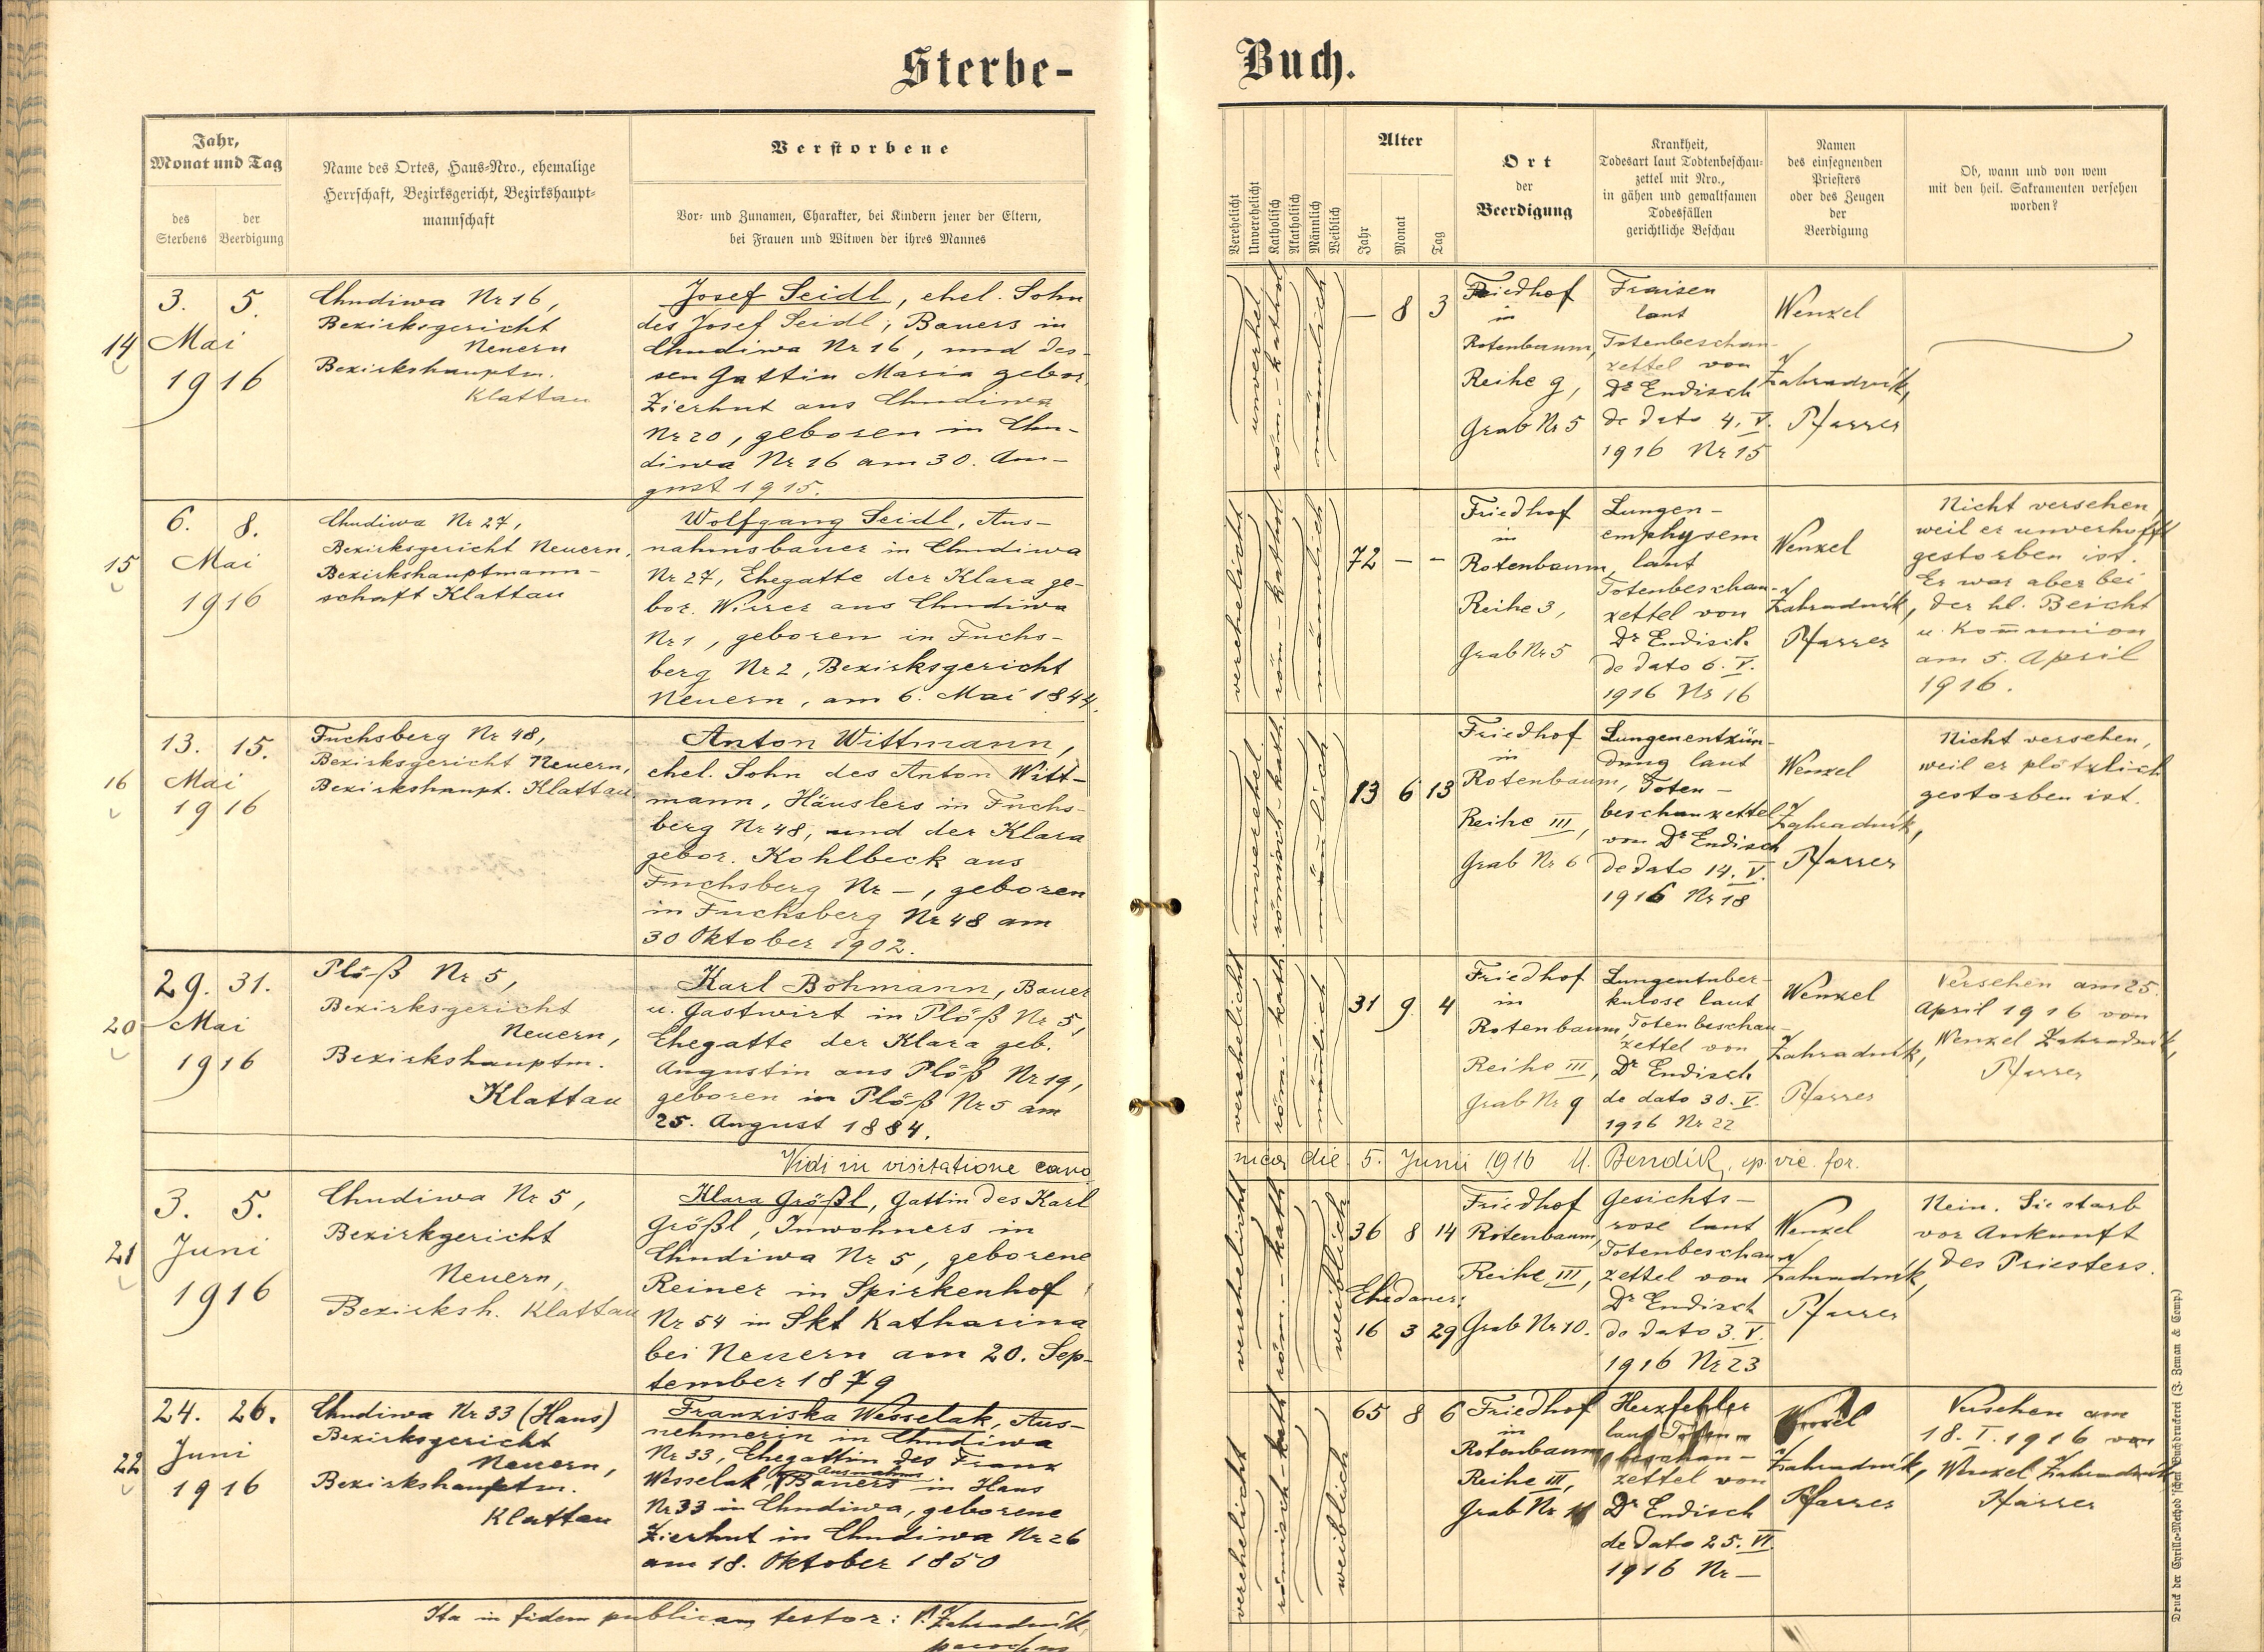 Sterbe-
Buch.
Jahr,
Monat und Tag
des
Sterbens
der
Beerdigung
Name des Ortes, Haus-Nro., ehemalige
Herrschaft, Bezirksgericht, Bezirkshaupt-
mannschaft
Verstorbene
Vor- und Zunamen, Charakter, bei Kindern jener der Eltern,
bei Frauen und Witwen der ihres Mannes
Verehelicht
Unverehelicht
Katholisch
Akatholisch
Männlich
Weiblich
Alter
Jahr
Monat
Tag
Ort
der
Beerdigung
Krankheit,
Todesart laut Todtenbeschau-
zettel mit Nro.,
in gähen und gewaltsamen
Todesfällen
gerichtliche Beschau
Namen
des einsegnenden
Priesters
oder des Zeugen
der
Beerdigung
Ob, wann und von wem
mit den heil. Sakramenten versehen
worden?
14
3. 5.
Mai
1916
Chudiwa Nr 16,
Bezirksgericht
Neuern
Bezirkshauptm.
Klattau
Josef Seidl, ehel. Sohn
des Josef Seidl, Bauers in
Chudiwa Nr 16, und des-
sen Gattin Maria gebor.
Zierhut aus Chudiwa
Nr 20, geboren in Chu-
diwa Nr 16 am 30. Au-
gust 1915.
unverhel.
röm.-kathol
männlich
— 8 3
Friedhof
in
Rotenbaum,
Reihe 9,
Grab Nr 5
Fraisen
laut
Totenbeschau-
zettel von
Dr Endisch
de dato 4. V.
1916 Nr 15
Wenzel
Zahradník,
Pfarrer
15
6. 8.
Mai
1916
Chudiwa Nr 27,
Bezirksgericht Neuern,
Bezirkshauptmann-
schaft Klattau
Wolfgang Seidl, Aus-
nahmsbauer in Chudiwa
Nr 27, Ehegatte der Klara ge-
bor. Wirrer aus Chudiwa
Nr 1, geboren in Fuchs-
berg Nr 2, Bezirksgericht
Neuern, am 6. Mai 1844.
verehelicht
röm-kathol
männlich
72 — —
Friedhof
in
Rotenbaum
Reihe 3,
Grab Nr 5
Lungen-
emphysem
laut
Totenbeschau-
zettel von
Dr Endisch
de dato 6. V.
1916 Nr 16
Wenzel
Zahradník,
Pfarrer
Nicht versehen,
weil er unverhofft
gestorben ist.
Er war aber bei
der hl. Beicht
u. Kom̄union
am 5. April
1916.
16
13. 15.
Mai
1916
Fuchsberg Nr 48,
Bezirksgericht Neuern,
Bezirkshaupt. Klattau
Anton Wittmann,
ehel. Sohn des Anton Witt-
mann, Häuslers in Fuchs-
berg Nr 48, und der Klara
gebor. Kohlbeck aus
Fuchsberg Nr —, geboren
in Fuchsberg Nr 48 am
30 Oktober 1902.
unverehel.
römisch-kath.
männlich
13 6 13
Friedhof
in
Rotenbaum,
Reihe III,
Grab Nr 6
Lungenentzün-
dung laut
Toten-
beschauzettel
von Dr Endisch
de dato 14. V.
1916 Nr 18
Wenzel
Zahradník,
Pfarrer
Nicht versehen,
weil er plötzlich
gestorben ist.
20
29. 31.
Mai
1916
Plöß Nr 5,
Bezirksgericht
Neuern,
Bezirkshauptm.
Klattau
Karl Böhmann, Bauer
u. Gastwirt in Plöß Nr 5,
Ehegatte der Klara geb.
Augustin aus Plöß Nr 19,
geboren in Plöß Nr 5 am
25. August 1884.
verehelicht
röm.-kath.
männlich
31 9 4
Friedhof
in
Rotenbaum
Reihe III,
Grab Nr 9
Lungentuber-
kulose laut
Totenbeschau-
zettel von
Dr Endisch
de dato 30. V.
1916 Nr 22
Wenzel
Zahradník,
Pfarrer
Versehen am 25.
April 1916 von
Wenzel Zahradník,
Pfarrer
Vidi in visitatione cano
nica die 5. Junii 1916 Bendík, ep. vic. for.
21
3. 5.
Juni
1916
Chudiwa Nr 5,
Bezirkgericht
Neuern,
Bezirksh. Klattau
Klara Größl, Gattin des Karl
Größl, Inwohners in
Chudiwa Nr 5, geborene
Reiner in Spirkenhof
Nr 54 in Skt Katharina
bei Neuern am 20. Sep-
tember 1879
verehelicht
röm.-kath
weiblich
36 8 14
Ehedauer:
16 3 29
Friedhof
Rotenbaum,
Reihe III,
Grab Nr 10.
Gesichts-
rose laut
Totenbeschau-
zettel von
Dr Endisch
de dato 3. V.
1916 Nr 23
Wenzel
Zahradník,
Pfarrer
Nein. Sie starb
vor Ankunft
des Priesters.
22
24. 26.
Juni
1916
Chudiwa Nr 33 (Haus)
Bezirksgericht
Neuern,
Bezirkshauptm.
Klattau
Franziska Wesselak, Aus-
nehmerin in Chudiwa
Nr 33, Ehegattin des Franz
Wesselak, Bauers in Haus
Nr 33 in Chudiwa, geborene
Zierhut in Chudiwa Nr 26
am 18. Oktober 1850
verehelicht
römisch-kath
weiblich
65 8 6
Friedhof
in
Rotenbaum
Reihe III,
Grab Nr 11
Herzfehler
laut Toten-
beschau-
zettel von
Dr Endisch
de dato 25. VI.
1916 Nr —
Wenzel
Zahradník,
Pfarrer
Versehen am
18. I. 1916 von
Wenzel Zahradník
Pfarrer
Ita in fidem publicam testor: V. Zahradník,
parochus
Druck der Cyrillo-Method'schen Buchdruckerei (J. Zeman & Comp.)